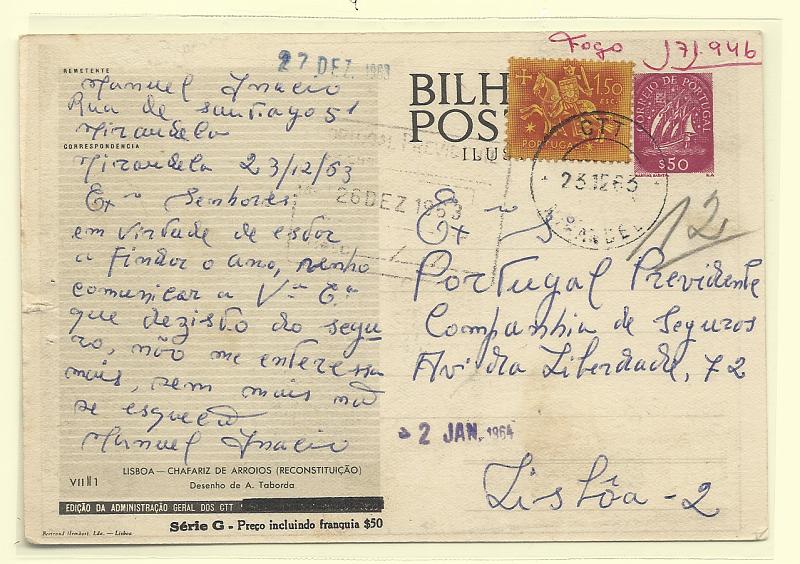 27 DEZ. 1963
REMETENTE
Manuel Inacio
Rua de santiago 51
Mirandela
CORRESPONDENCIA
Mirandela 23/12/63
Exmo Senhores
em virtude de estar
a Findar o ano, venho
comunicar a Va Exa
que dezisto do segu
ro, não me enteressa
mais, sem mais
se esquecer
Manuel Inacio
VII 1
LISBOA — CHAFARIZ DE ARROIOS (RECONSTITUIÇÃO)
Desenho de A. Taborda
EDIÇÃO DA ADMINISTRAÇÃO GERAL DOS CTT
Série G - Preço incluindo franquia $50
Bertrand (Irmãos), Lda. — Lisboa
Fogo 171.946
BILH
POST
ILUS
1$50
ESC.
PORTUGAL
CORREIO DE PORTUGAL
$50
CTT
23.12.63
26 DEZ 1963
12
Exmo S
Portugal Previdente
Companhia de Seguros
Av. da Liberdade, 72
2 JAN. 1964
Lisbôa - 2